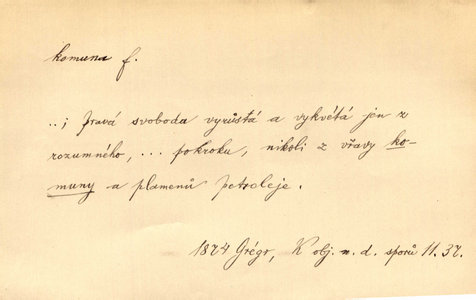 komuna f.
..; pravá svoboda vyrůstá a vykvétá jen z
rozumného, ... pokroku, nikoli z vřavy ko-
muny a plamenů petroleje.
1874 Grégr, K obj. n. d. sporů 11. 37.